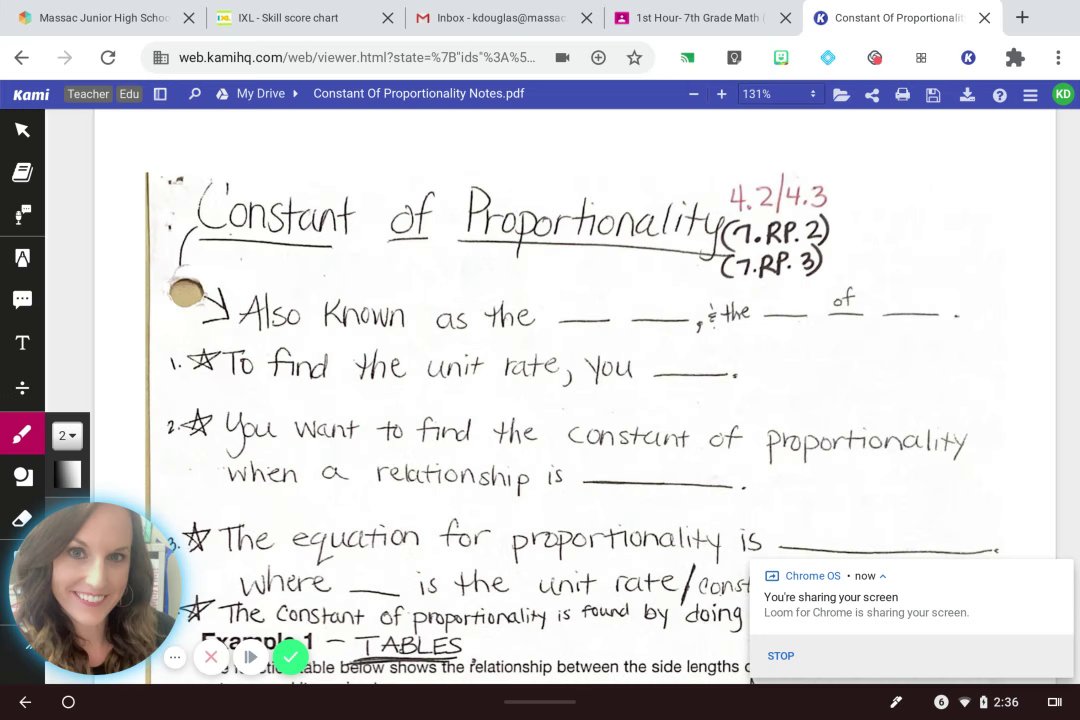 Massac Junior High Schoo
IXL - Skill score chart
Inbox - kdouglas@massac
1st Hour- 7th Grade Math (
Constant Of Proportionalit
web.kamihq.com/web/viewer.html?state=%7B"ids"%3A%5...
Kami Teacher Edu My Drive Constant Of Proportionality Notes.pdf 131% KD
Constant of Proportionality
4.2/4.3
(7.RP.2)
(7.RP.3)
Also Known as the __ __, & the __ of __.
1. ☆ To find the unit rate, you ____.
2. ☆ You want to find the constant of proportionality
when a relationship is ____.
3. ☆ The equation for proportionality is ____.
where __ is the unit rate/const
☆ The constant of proportionality is found by doing
Example 1 - TABLES
table below shows the relationship between the side lengths
2
Chrome OS • now
You're sharing your screen
Loom for Chrome is sharing your screen.
STOP
6 2:36